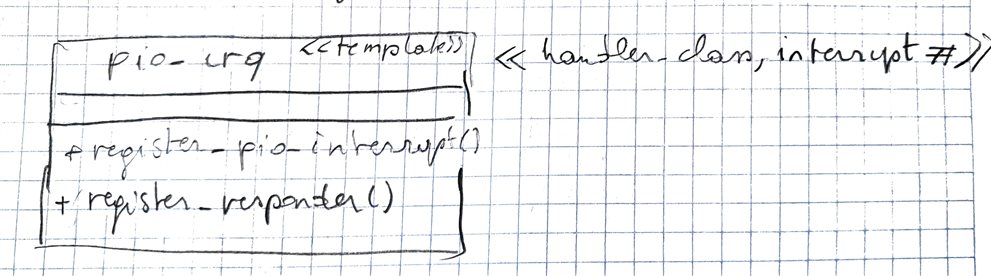 pio_irq <<template>> << handler_class, interrupt # >>
+ register_pio_interrupt()
+ register_responder()